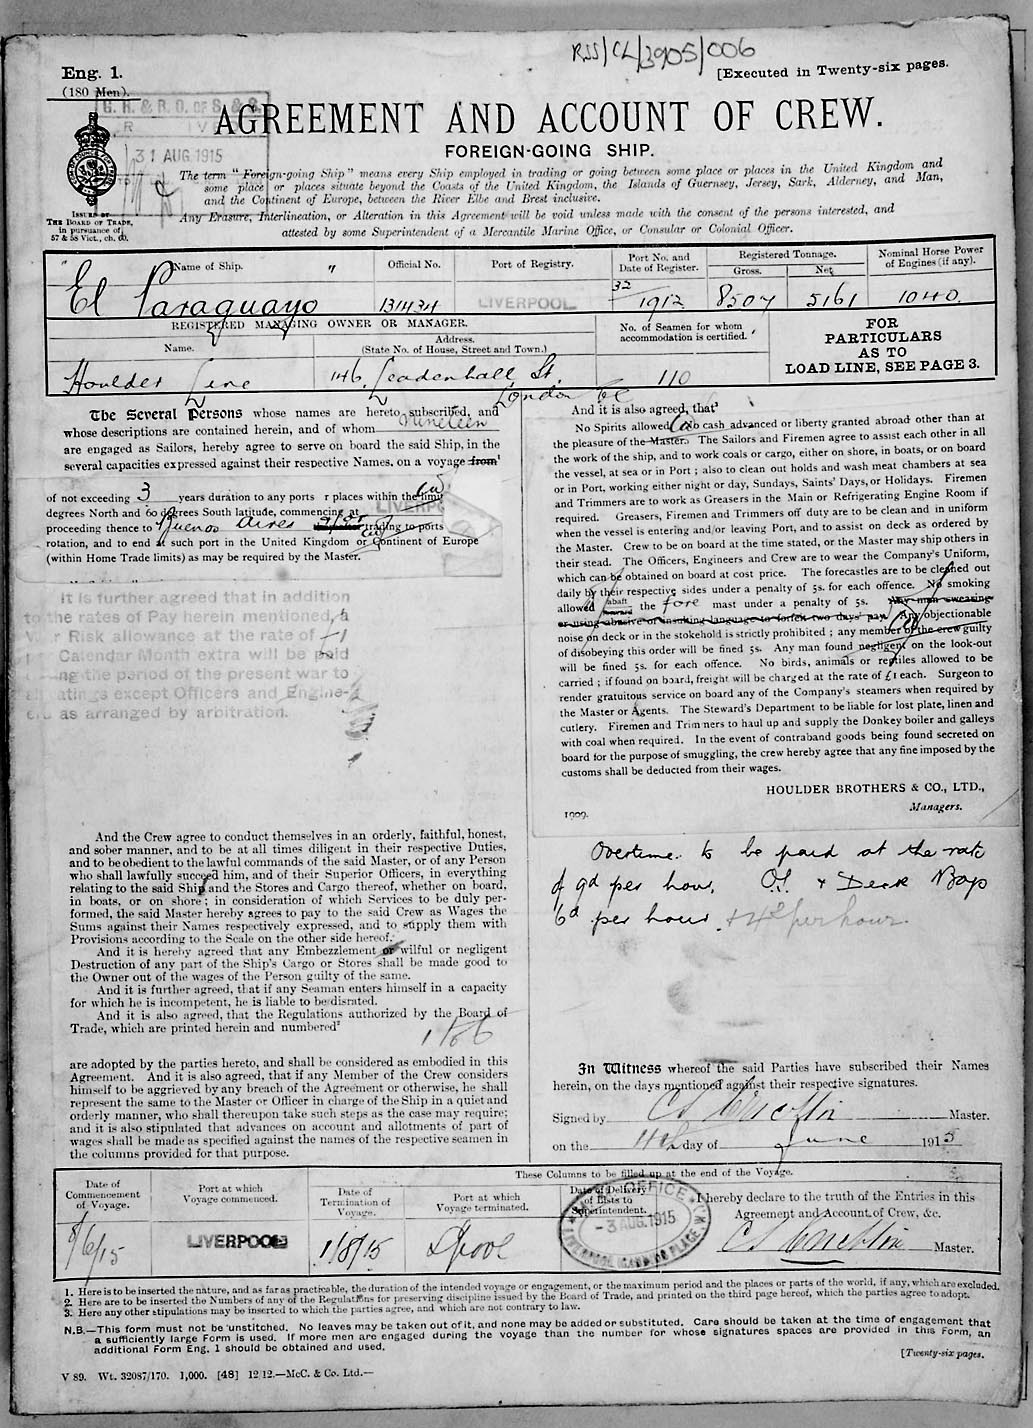 RSS/CL/3905/006
Eng. 1.
(180 Men).
[Executed in Twenty-six pages.
G. R. & R. O. OF S. & S.
31 AUG 1915
AGREEMENT AND ACCOUNT OF CREW.
FOREIGN-GOING SHIP.
The term "Foreign-going Ship" means every Ship employed in trading or going between some place or places in the United Kingdom and
some place or places situate beyond the Coasts of the United Kingdom, the Islands of Guernsey, Jersey, Sark, Alderney, and Man,
and the Continent of Europe, between the River Elbe and Brest inclusive.
Any Erasure, Interlineation, or Alteration in this Agreement will be void unless made with the consent of the persons interested, and
attested by some Superintendent of a Mercantile Marine Office, or Consular or Colonial Officer.
ISSUED BY
THE BOARD OF TRADE,
in pursuance of
57 & 58 Vict., ch. 60.
Name of Ship.
Official No.
Port of Registry.
Port No. and
Date of Register.
Registered Tonnage.
Gross.
Net.
Nominal Horse Power
of Engines (if any).
"El Paraguayo"
131434
LIVERPOOL
32
1912
8507
5161
1040.
REGISTERED MANAGING OWNER OR MANAGER.
Name.
Address.
(State No. of House, Street and Town.)
No. of Seamen for whom
accommodation is certified.
FOR
PARTICULARS
AS TO
LOAD LINE, SEE PAGE 3.
Houlder Line
146 Leadenhall St.
London EC
110
The Several Persons whose names are hereto subscribed, and
whose descriptions are contained herein, and of whom nineteen
are engaged as Sailors, hereby agree to serve on board the said Ship, in the
several capacities expressed against their respective Names, on a voyage from¹
of not exceeding 3 years duration to any ports r places within the limit
degrees North and 60 degrees South latitude, commencing at
proceeding thence to Buenos Aires trading to ports
rotation, and to end at such port in the United Kingdom or Continent of Europe
(within Home Trade limits) as may be required by the Master.
LIVERPO
It is further agreed that in addition
to the rates of Pay herein mentioned, a
r Risk allowance at the rate of
Calendar Month extra will be paid
ng the period of the present war to
atings except Officers and Engine-
as arranged by arbitration.
And the Crew agree to conduct themselves in an orderly, faithful, honest,
and sober manner, and to be at all times diligent in their respective Duties,
and to be obedient to the lawful commands of the said Master, or of any Person
who shall lawfully succeed him, and of their Superior Officers, in everything
relating to the said Ship and the Stores and Cargo thereof, whether on board,
in boats, or on shore; in consideration of which Services to be duly per-
formed, the said Master hereby agrees to pay to the said Crew as Wages the
Sums against their Names respectively expressed, and to supply them with
Provisions according to the Scale on the other side hereof.
And it is hereby agreed that any Embezzlement or wilful or negligent
Destruction of any part of the Ship's Cargo or Stores shall be made good to
the Owner out of the wages of the Person guilty of the same.
And it is further agreed, that if any Seaman enters himself in a capacity
for which he is incompetent, he is liable to be disrated.
And it is also agreed, that the Regulations authorized by the Board of
Trade, which are printed herein and numbered²
1 to 6
are adopted by the parties hereto, and shall be considered as embodied in this
Agreement. And it is also agreed, that if any Member of the Crew considers
himself to be aggrieved by any breach of the Agreement or otherwise, he shall
represent the same to the Master or Officer in charge of the Ship in a quiet and
orderly manner, who shall thereupon take such steps as the case may require;
and it is also stipulated that advances on account and allotments of part of
wages shall be made as specified against the names of the respective seamen in
the columns provided for that purpose.
And it is also agreed, that³
No Spirits allowed. No cash advanced or liberty granted abroad other than at
the pleasure of the Master. The Sailors and Firemen agree to assist each other in all
the work of the ship, and to work coals or cargo, either on shore, in boats, or on board
the vessel, at sea or in Port; also to clean out holds and wash meat chambers at sea
or in Port, working either night or day, Sundays, Saints' Days, or Holidays. Firemen
and Trimmers are to work as Greasers in the Main or Refrigerating Engine Room if
required. Greasers, Firemen and Trimmers off duty are to be clean and in uniform
when the vessel is entering and/or leaving Port, and to assist on deck as ordered by
the Master. Crew to be on board at the time stated, or the Master may ship others in
their stead. The Officers, Engineers and Crew are to wear the Company's Uniform,
which can be obtained on board at cost price. The forecastles are to be cleaned out
daily by their respective sides under a penalty of 5s. for each offence. No smoking
allowed abaft the fore mast under a penalty of 5s. Any man swearing
or using abusive or insulting language to forfeit two days' pay. Any objectionable
noise on deck or in the stokehold is strictly prohibited; any member of the crew guilty
of disobeying this order will be fined 5s. Any man found negligent on the look-out
will be fined 5s. for each offence. No birds, animals or reptiles allowed to be
carried; if found on board, freight will be charged at the rate of £1 each. Surgeon to
render gratuitous service on board any of the Company's steamers when required by
the Master or Agents. The Steward's Department to be liable for lost plate, linen and
cutlery. Firemen and Trimmers to haul up and supply the Donkey boiler and galleys
with coal when required. In the event of contraband goods being found secreted on
board for the purpose of smuggling, the crew hereby agree that any fine imposed by the
customs shall be deducted from their wages.
HOULDER BROTHERS & CO., LTD.,
Managers.
1909.
Overtime to be paid at the rate
of 9d per hour, O.S. & Deck Boys
6d per hour & 4d per hour.
In Witness whereof the said Parties have subscribed their Names
herein, on the days mentioned against their respective signatures.
Signed by Master.
on the 4th day of June 1915
These Columns to be filled up at the end of the Voyage.
Date of
Commencement
of Voyage.
Port at which
Voyage commenced.
Date of
Termination of
Voyage.
Port at which
Voyage terminated.
Date of Delivery
of Lists to
Superintendent.
I hereby declare to the truth of the Entries in this
Agreement and Account of Crew, &c.
Master.
8/6/15
LIVERPOOL
1/8/15
L'pool
-3 AUG 1915
1. Here is to be inserted the nature, and as far as practicable, the duration of the intended voyage or engagement, or the maximum period and the places or parts of the world, if any, which are excluded.
2. Here are to be inserted the Numbers of any of the Regulations for preserving discipline issued by the Board of Trade, and printed on the third page hereof, which the parties agree to adopt.
3. Here any other stipulations may be inserted to which the parties agree, and which are not contrary to law.
N.B.—This form must not be unstitched. No leaves may be taken out of it, and none may be added or substituted. Care should be taken at the time of engagement that
a sufficiently large Form is used. If more men are engaged during the voyage than the number for whose signatures spaces are provided in this Form, an
additional Form Eng. 1 should be obtained and used.
[Twenty-six pages.
V 89. Wt. 32087/170. 1,000. [48] 12/12.—McC. & Co. Ltd.—